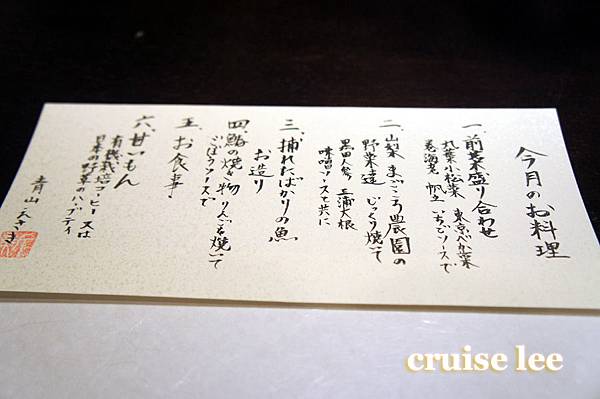 今月のお料理
一、前菜盛り合わせ
丸葉小松菜 東京べか菜
巻海老 帆立 いちごソースで
二、山梨 まごころ農園の
野菜達 じっくり焼いて
黒田人参 三浦大根
味噌ソースと共に
三、捕れたばかりの魚
お造り
四、鰆の焼き物 りんごも焼いて
ごぼうソースで
五、お食事
六、甘いもん
有機栽培コーヒー又は
日本の野草のハーブティ
青山 えさき
cruise lee